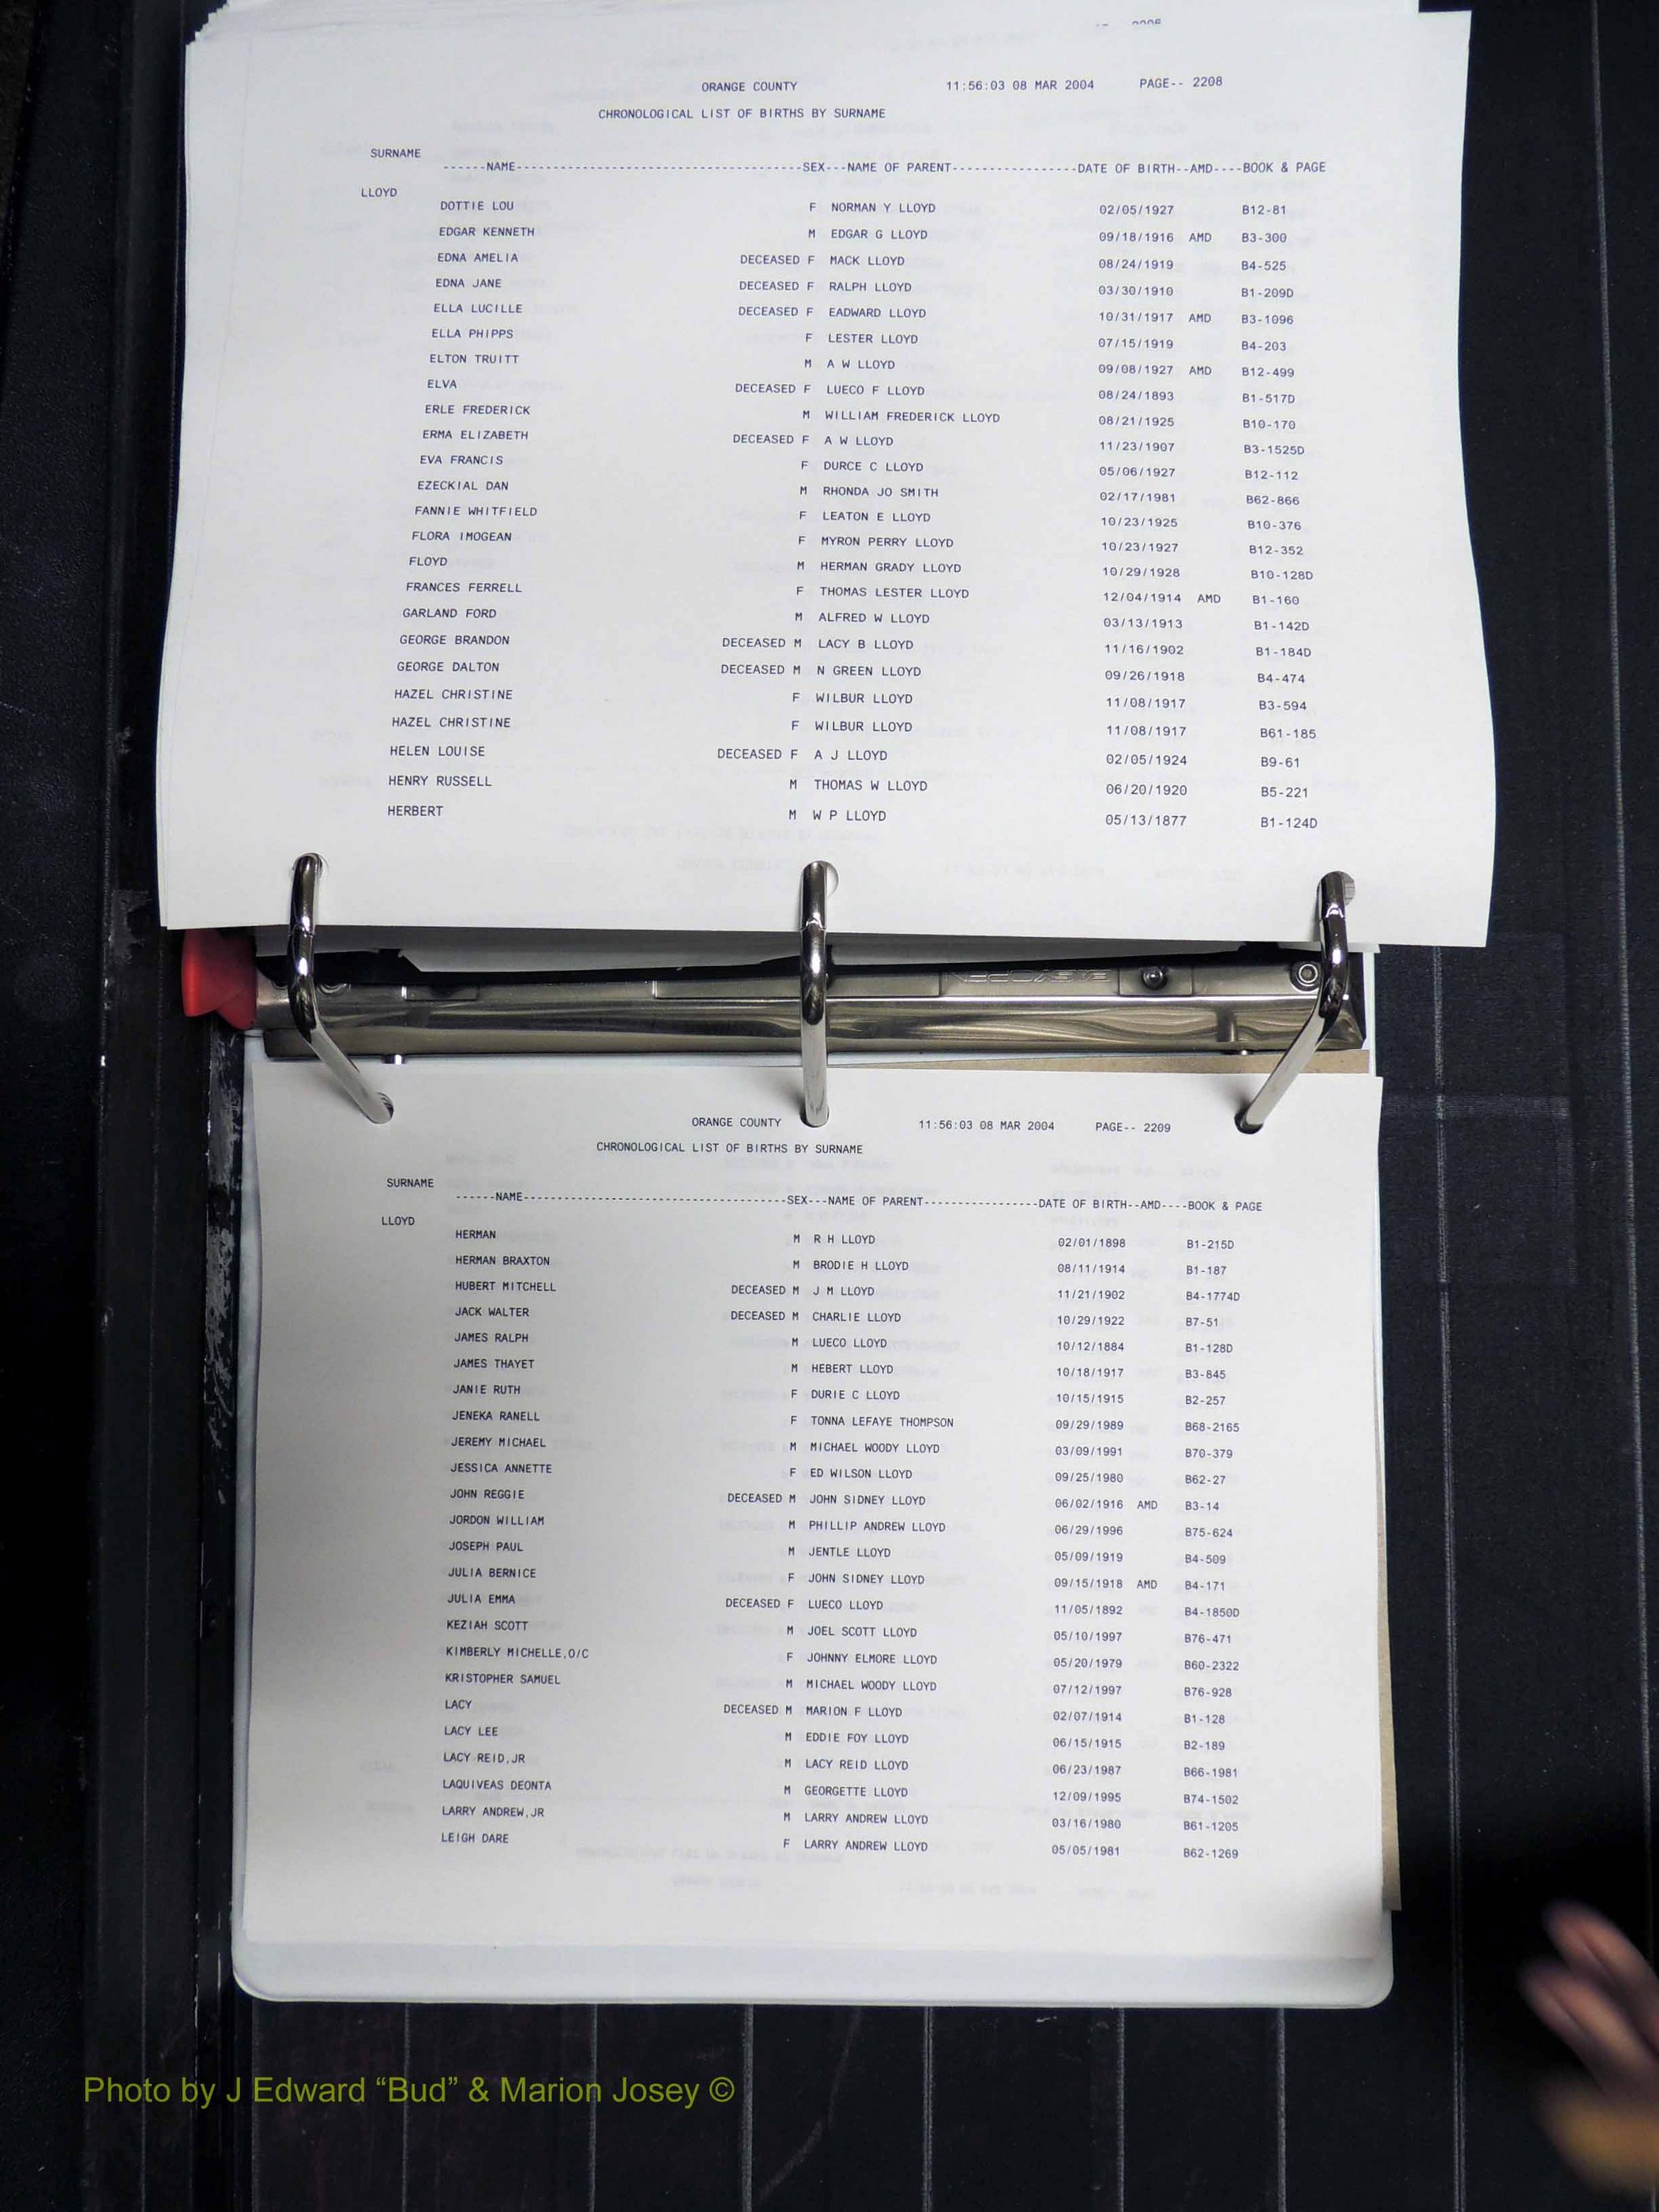 ORANGE COUNTY 11:56:03 08 MAR 2004 PAGE-- 2208
CHRONOLOGICAL LIST OF BIRTHS BY SURNAME
SURNAME
------NAME----------------------------------------SEX---NAME OF PARENT-----------------DATE OF BIRTH--AMD----BOOK & PAGE
LLOYD
DOTTIE LOU F NORMAN Y LLOYD 02/05/1927 B12-81
EDGAR KENNETH M EDGAR G LLOYD 09/18/1916 AMD B3-300
EDNA AMELIA DECEASED F MACK LLOYD 08/24/1919 B4-525
EDNA JANE DECEASED F RALPH LLOYD 03/30/1910 B1-209D
ELLA LUCILLE DECEASED F EADWARD LLOYD 10/31/1917 AMD B3-1096
ELLA PHIPPS F LESTER LLOYD 07/15/1919 B4-203
ELTON TRUITT M A W LLOYD 09/08/1927 AMD B12-499
ELVA DECEASED F LUECO F LLOYD 08/24/1893 B1-517D
ERLE FREDERICK M WILLIAM FREDERICK LLOYD 08/21/1925 B10-170
ERMA ELIZABETH DECEASED F A W LLOYD 11/23/1907 B3-1525D
EVA FRANCIS F DURCE C LLOYD 05/06/1927 B12-112
EZECKIAL DAN M RHONDA JO SMITH 02/17/1981 B62-866
FANNIE WHITFIELD F LEATON E LLOYD 10/23/1925 B10-376
FLORA IMOGEAN F MYRON PERRY LLOYD 10/23/1927 B12-352
FLOYD M HERMAN GRADY LLOYD 10/29/1928 B10-128D
FRANCES FERRELL F THOMAS LESTER LLOYD 12/04/1914 AMD B1-160
GARLAND FORD M ALFRED W LLOYD 03/13/1913 B1-142D
GEORGE BRANDON DECEASED M LACY B LLOYD 11/16/1902 B1-184D
GEORGE DALTON DECEASED M N GREEN LLOYD 09/26/1918 B4-474
HAZEL CHRISTINE F WILBUR LLOYD 11/08/1917 B3-594
HAZEL CHRISTINE F WILBUR LLOYD 11/08/1917 B61-185
HELEN LOUISE DECEASED F A J LLOYD 02/05/1924 B9-61
HENRY RUSSELL M THOMAS W LLOYD 06/20/1920 B5-221
HERBERT M W P LLOYD 05/13/1877 B1-124D
ORANGE COUNTY 11:56:03 08 MAR 2004 PAGE-- 2209
CHRONOLOGICAL LIST OF BIRTHS BY SURNAME
SURNAME
------NAME----------------------------------------SEX---NAME OF PARENT-----------------DATE OF BIRTH--AMD----BOOK & PAGE
LLOYD
HERMAN M R H LLOYD 02/01/1898 B1-215D
HERMAN BRAXTON M BRODIE H LLOYD 08/11/1914 B1-187
HUBERT MITCHELL DECEASED M J M LLOYD 11/21/1902 B4-1774D
JACK WALTER DECEASED M CHARLIE LLOYD 10/29/1922 B7-51
JAMES RALPH M LUECO LLOYD 10/12/1884 B1-128D
JAMES THAYET M HEBERT LLOYD 10/18/1917 B3-845
JANIE RUTH F DURIE C LLOYD 10/15/1915 B2-257
JENEKA RANELL F TONNA LEFAYE THOMPSON 09/29/1989 B68-2165
JEREMY MICHAEL M MICHAEL WOODY LLOYD 03/09/1991 B70-379
JESSICA ANNETTE F ED WILSON LLOYD 09/25/1980 B62-27
JOHN REGGIE DECEASED M JOHN SIDNEY LLOYD 06/02/1916 AMD B3-14
JORDON WILLIAM M PHILLIP ANDREW LLOYD 06/29/1996 B75-624
JOSEPH PAUL M JENTLE LLOYD 05/09/1919 B4-509
JULIA BERNICE F JOHN SIDNEY LLOYD 09/15/1918 AMD B4-171
JULIA EMMA DECEASED F LUECO LLOYD 11/05/1892 B4-1850D
KEZIAH SCOTT M JOEL SCOTT LLOYD 05/10/1997 B76-471
KIMBERLY MICHELLE,O/C F JOHNNY ELMORE LLOYD 05/20/1979 B60-2322
KRISTOPHER SAMUEL M MICHAEL WOODY LLOYD 07/12/1997 B76-928
LACY DECEASED M MARION F LLOYD 02/07/1914 B1-128
LACY LEE M EDDIE FOY LLOYD 06/15/1915 B2-189
LACY REID,JR M LACY REID LLOYD 06/23/1987 B66-1981
LAQUIVEAS DEONTA M GEORGETTE LLOYD 12/09/1995 B74-1502
LARRY ANDREW,JR M LARRY ANDREW LLOYD 03/16/1980 B61-1205
LEIGH DARE F LARRY ANDREW LLOYD 05/05/1981 B62-1269
Photo by J Edward “Bud” & Marion Josey ©